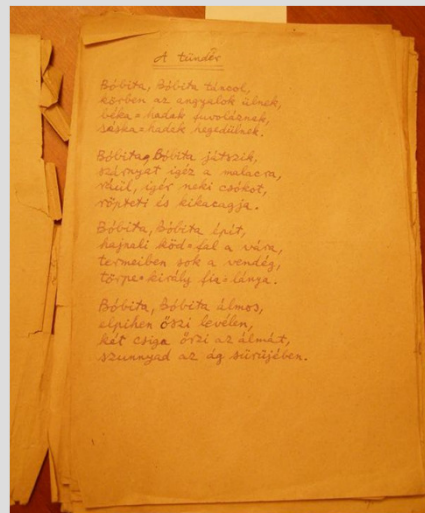 A tündér
Bóbita, Bóbita táncol,
körben az angyalok ülnek,
béka=hadak fuvoláznak,
sáska=hadak hegedülnek.
Bóbita, Bóbita játszik,
szárnyat igéz a malacra,
ráül, igér neki csókot,
röpteti és kikacagja.
Bóbita, Bóbita épit,
hajnali köd=fal a vára,
termeiben sok a vendég,
törpe=király fia=lánya.
Bóbita, Bóbita álmos,
elpihen őszi levélen,
két csiga őrzi az álmát,
szunnyad az ág sürüjében.